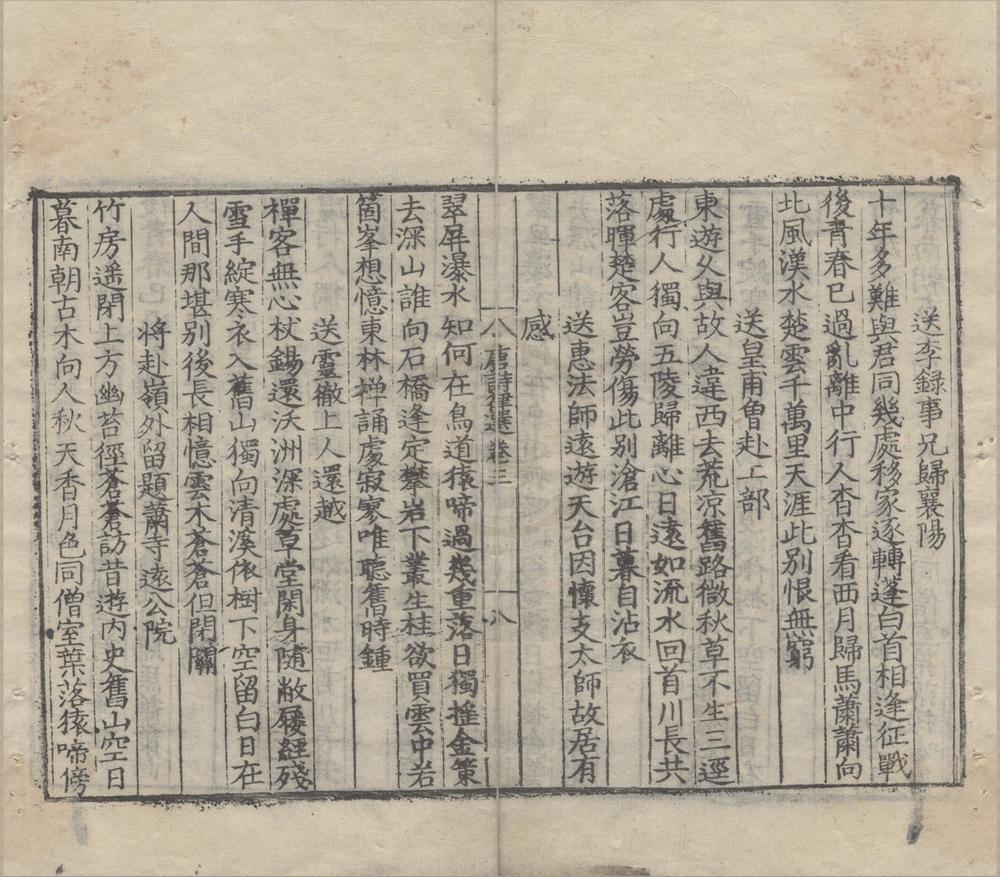 送李録事兄歸襄陽
十年多難與君同幾處移家逐轉蓬白首相逢征戰
後青春已過亂離中行人杳杳看西月歸馬蕭蕭向
北風漢水楚雲千萬里天涯此別恨無窮
送皇甫曾赴工部
東遊久與故人違西去荒凉舊路微秋草不生三逕
處行人獨向五陵歸離心日遠如流水回首川長共
落暉楚客豈勞傷此別滄江日暮自沾衣
送惠法師遠遊天台因懷支太師故居有
感
唐詩律選卷三 十八
翠屏瀑水知何在鳥道猿啼過幾重落日獨搖金策
去深山誰向石橋逢定攀岩下叢生桂欲買雲中若
箇峯想憶東林禅誦處寂寥唯聽舊時鍾
送靈徹上人還越
禪客無心杖錫還沃洲深處草堂閑身隨敝屨經殘
雪手綻寒衣入舊山獨向清溪依樹下空留白日在
人間那堪別後長相憶雲木蒼蒼但閉關
將赴嶺外留題蕭寺遠公院
竹房遥閉上方幽苔徑蒼蒼訪昔遊内史舊山空日
暮南朝古木向人秋天香月色同僧室葉落猿啼傍